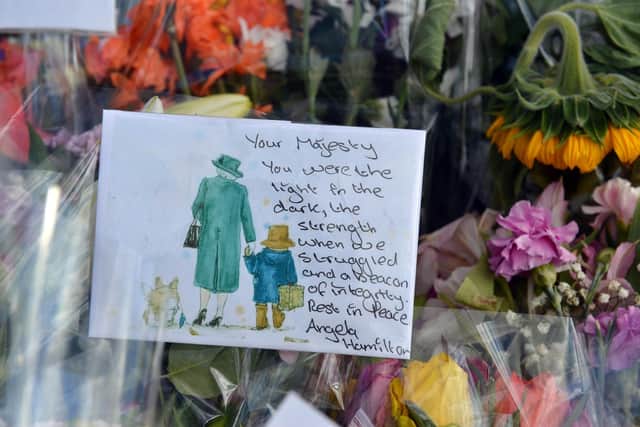 Your Majesty
You were the
light in the
dark, the
strength
when we
struggled
and a beacon
of integrity.
Rest in Peace
Angela
Hamilton